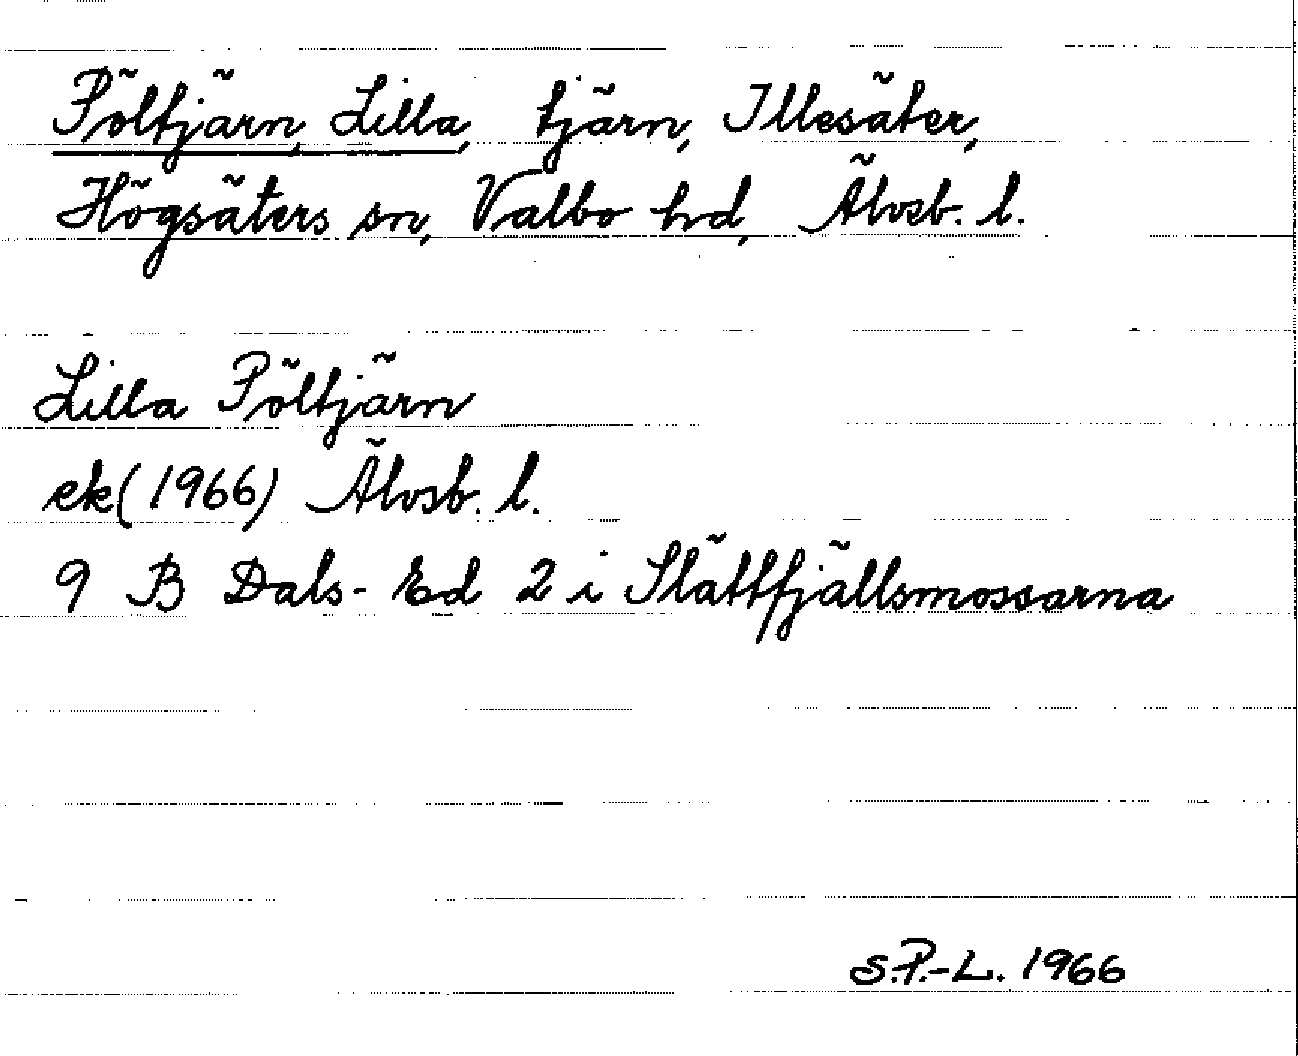 Pöltjärn, Lilla, tjärn, Illesäter,
Högsäters sn, Valbo hd, Älvsb. l.
Lilla Pöltjärn
ek (1966) Älvsb. l.
9 B Dals-Ed 2 i Slättfjällsmossarna
S.P.-L. 1966